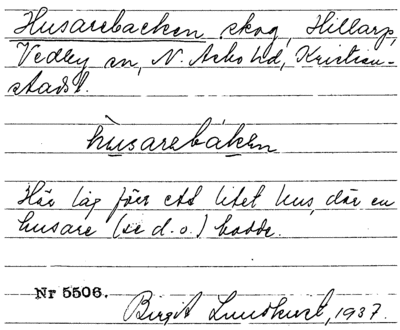 Husarebacken skog, Hillarp,
Vedby sn, N. Åsbo hd, Kristian-
stads l.
hùsarebáken
Här låg förr ett litet hus, där en
husare (se d. o.) bodde.
Nr 5506.
Birgit Lundkvist, 1937.